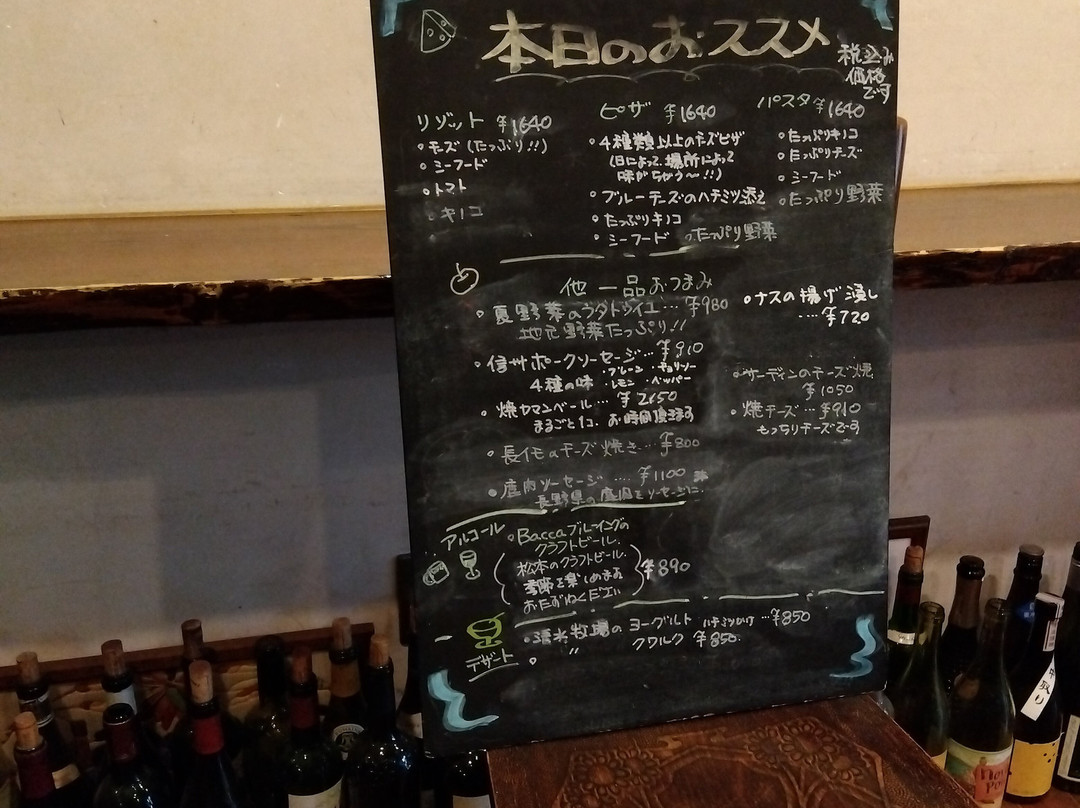 本日のおススメ
税込み
価格
です
リゾット ¥1640
・チーズ(たっぷり!!)
・シーフード
・トマト
・キノコ
ピザ ¥1640
・4種類以上のチーズピザ
(日によって、場所によって
味がちがう〜!!)
・ブルーチーズのハチミツ添え
・たっぷりキノコ
・シーフード ・たっぷり野菜
パスタ ¥1640
・たっぷりキノコ
・たっぷりチーズ
・シーフード
・たっぷり野菜
他 一品おつまみ
・夏野菜のラタトゥイユ… ¥980
地元野菜たっぷり!!
・信州ポークソーセージ… ¥910
4種の味 ・プレーン ・チョリソー
・レモン ・ペッパー
・焼カマンベール… ¥2650
まるごと1コ. お時間頂きます
・長イモのチーズ焼き… ¥800
・鹿肉ソーセージ…. ¥1100
長野県の鹿肉をソーセージに.
・ナスの揚げ浸し
… ¥720
・サーディンのチーズ焼
¥1050
・焼チーズ… ¥910
もっちりチーズです
アルコール
・Baccaブルーイングの
クラフトビール.
松本のクラフトビール.
季節を楽しめます
おたずねください
¥890
デザート
・清水牧場の ヨーグルト ハチミツかけ …¥850
・ 〃 クワルク ¥850.